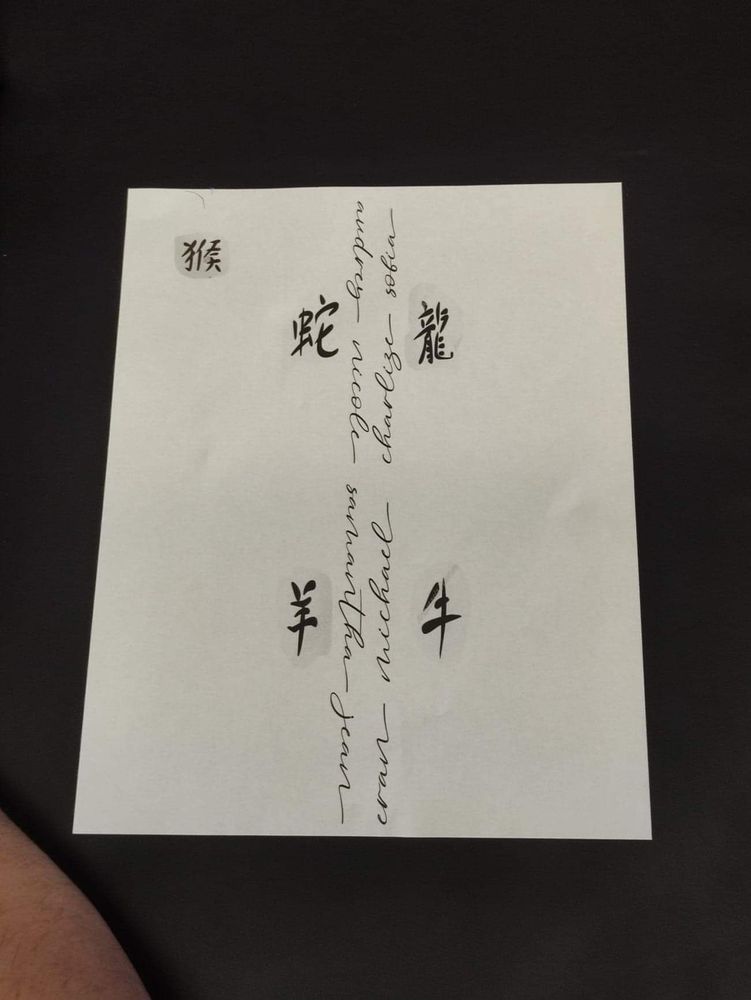 猴
蛇
龍
羊
牛
audrey nicole samantha jean
evan michael charlize sofia